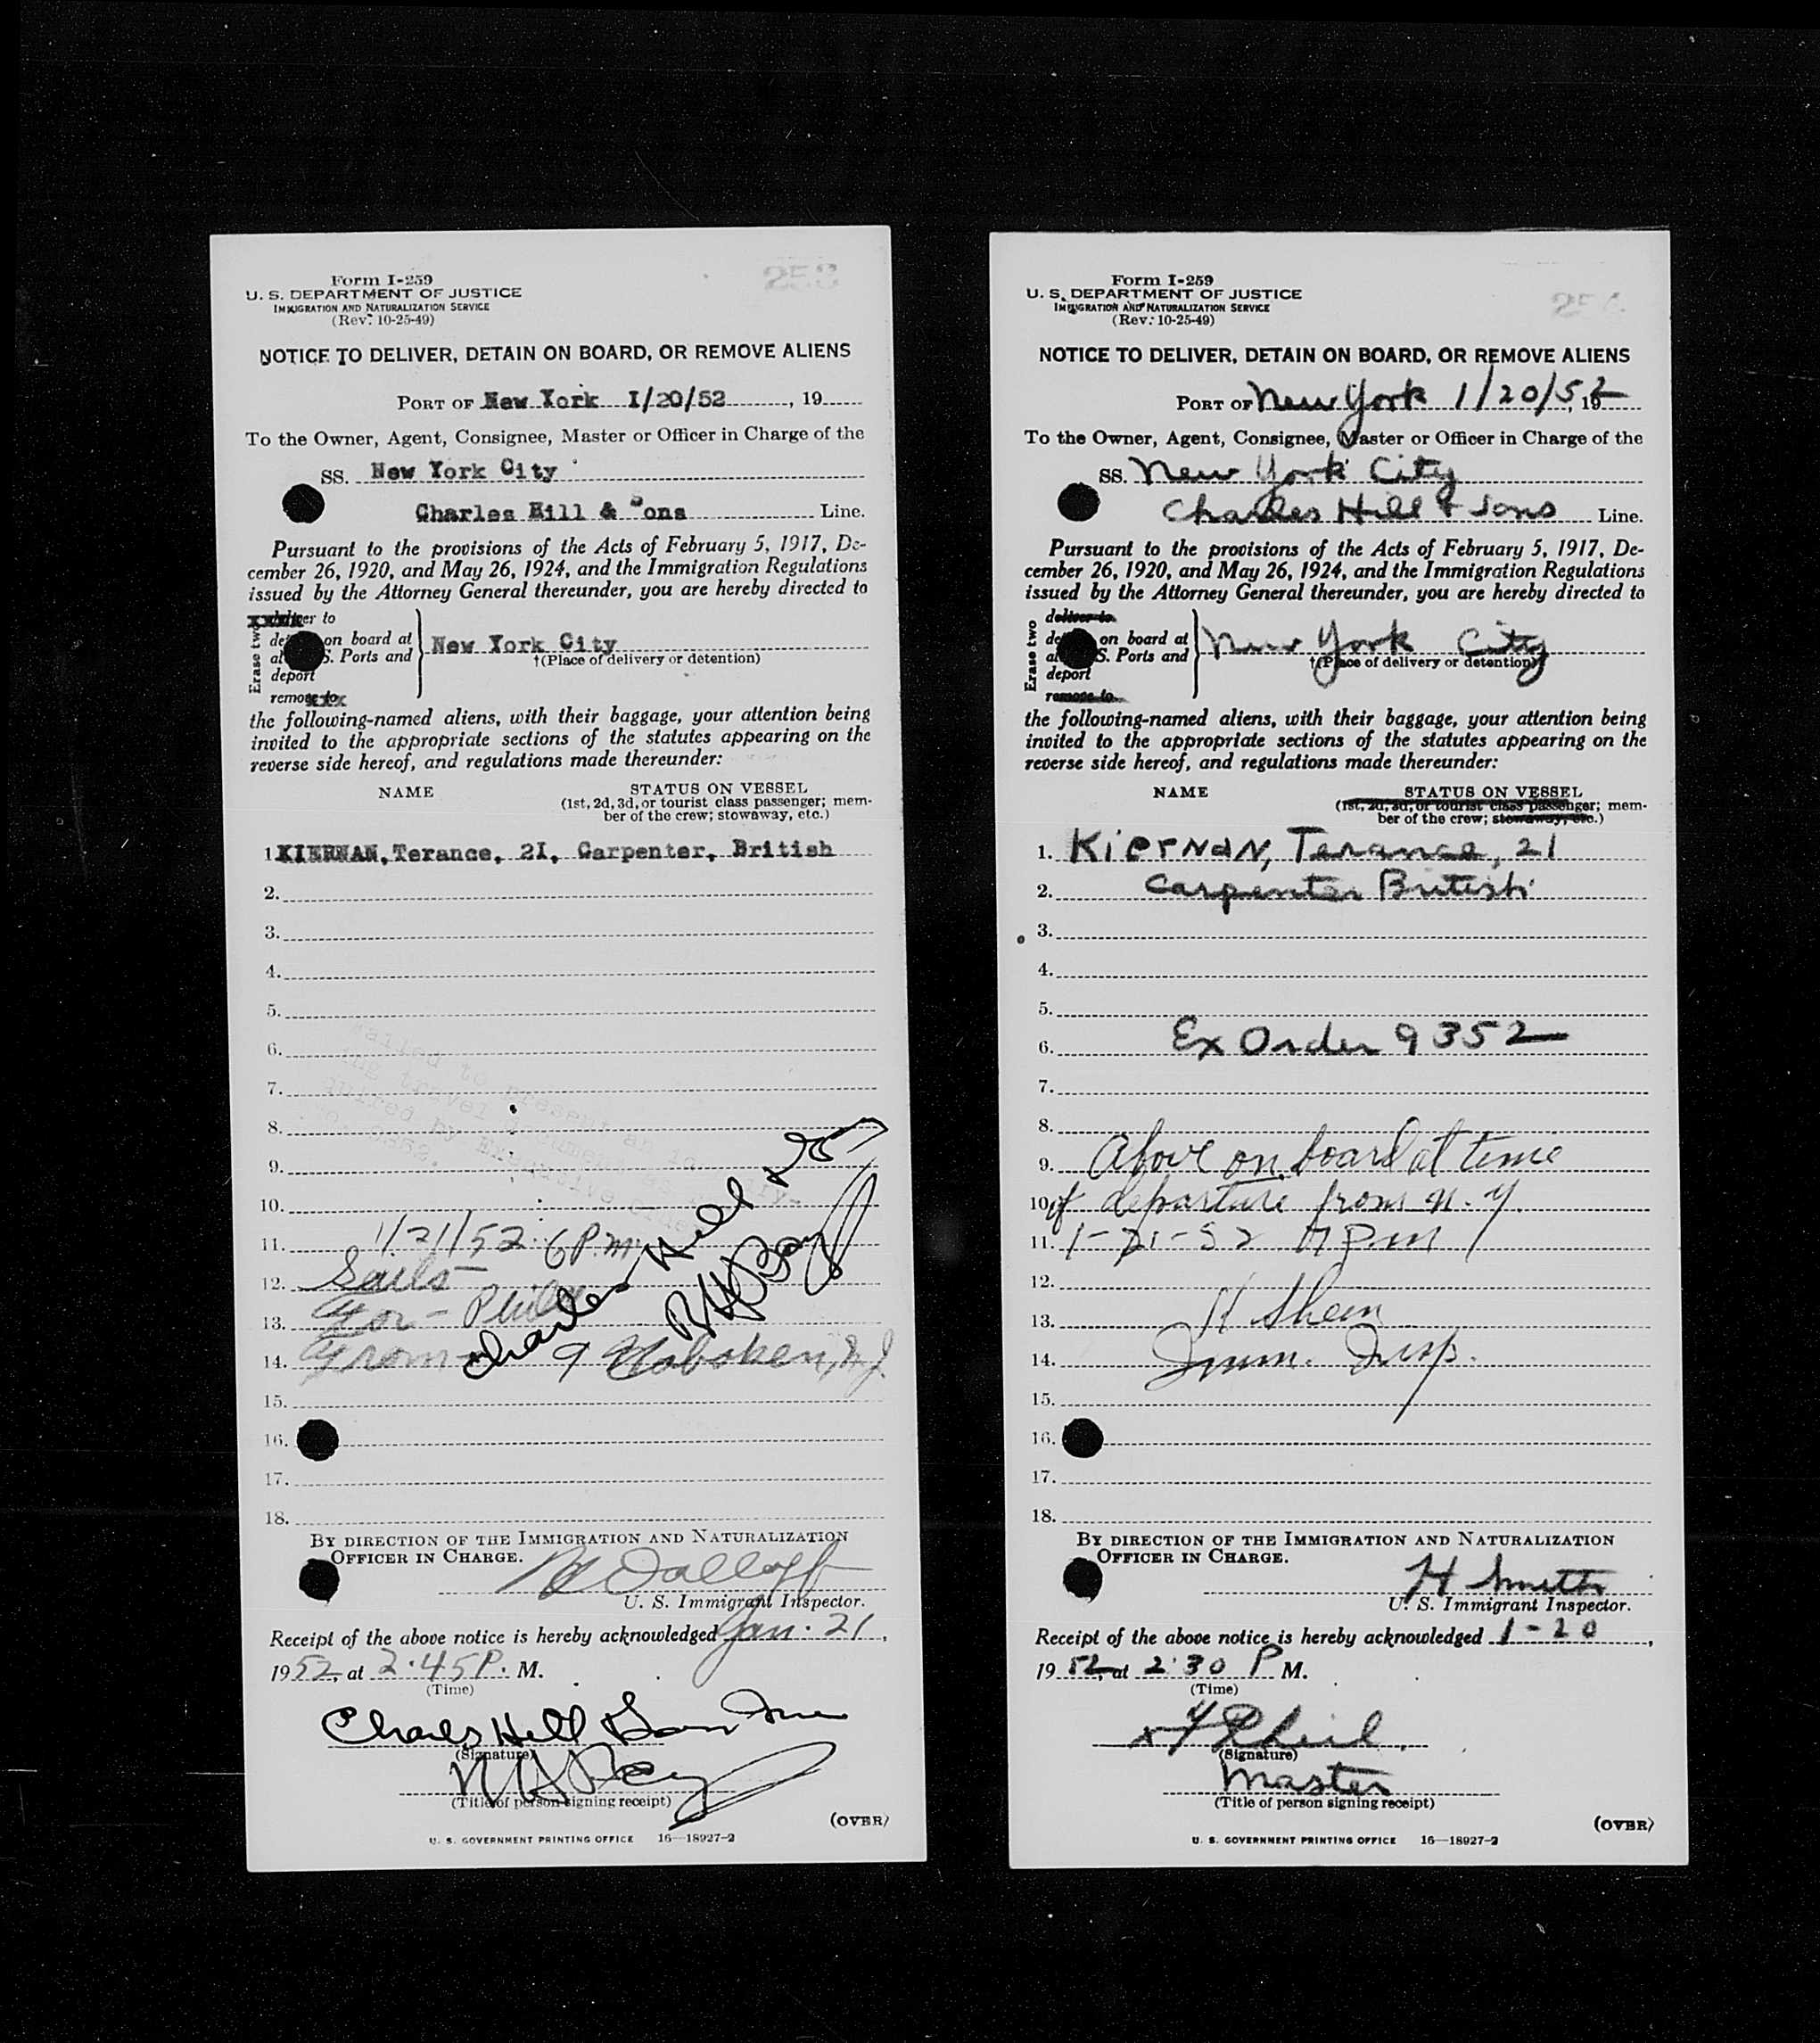 Form I-259
U. S. DEPARTMENT OF JUSTICE
IMMIGRATION AND NATURALIZATION SERVICE
(Rev. 10-25-49)
NOTICE TO DELIVER, DETAIN ON BOARD, OR REMOVE ALIENS
PORT OF New York I/20/52, 19
To the Owner, Agent, Consignee, Master or Officer in Charge of the
SS. New York City
Charles Hill & Sons Line.
Pursuant to the provisions of the Acts of February 5, 1917, De-
cember 26, 1920, and May 26, 1924, and the Immigration Regulations
issued by the Attorney General thereunder, you are hereby directed to
Erase two
on board at
S. Ports and
deport
remove to
New York City
†(Place of delivery or detention)
the following-named aliens, with their baggage, your attention being
invited to the appropriate sections of the statutes appearing on the
reverse side hereof, and regulations made thereunder:
NAME STATUS ON VESSEL
(1st, 2d, 3d, or tourist class passenger; mem-
ber of the crew; stowaway, etc.)
1. KIERNAN, Terance, 2I, Carpenter, British
2.
3.
4.
5.
6.
7.
8.
9.
10.
11. 1/21/52 6 P.m.
12. Sails
13. For - Phila
14. From Hoboken, N.J.
Charles Hill
15.
16.
17.
18.
BY DIRECTION OF THE IMMIGRATION AND NATURALIZATION
OFFICER IN CHARGE.
U. S. Immigrant Inspector.
Receipt of the above notice is hereby acknowledged Jan. 21,
1952, at 2.45 P. M.
(Time)
Charles Hill
(Signature)
(Title of person signing receipt)
(OVER)
U. S. GOVERNMENT PRINTING OFFICE 16—18927-2
Form I-259
U. S. DEPARTMENT OF JUSTICE
IMMIGRATION AND NATURALIZATION SERVICE
(Rev. 10-25-49)
NOTICE TO DELIVER, DETAIN ON BOARD, OR REMOVE ALIENS
PORT OF New York 1/20/52, 19
To the Owner, Agent, Consignee, Master or Officer in Charge of the
SS. New York City
Charles Hill & Sons Line.
Pursuant to the provisions of the Acts of February 5, 1917, De-
cember 26, 1920, and May 26, 1924, and the Immigration Regulations
issued by the Attorney General thereunder, you are hereby directed to
Erase two
deliver to
on board at
S. Ports and
deport
remove to
New York City
†(Place of delivery or detention)
the following-named aliens, with their baggage, your attention being
invited to the appropriate sections of the statutes appearing on the
reverse side hereof, and regulations made thereunder:
NAME STATUS ON VESSEL
(1st, 2d, 3d, or tourist class passenger; mem-
ber of the crew; stowaway, etc.)
1. Kiernan, Terance, 21
2. Carpenter British
3.
4.
5.
6. Ex Order 9352
7.
8.
9. Above on board at time
10. of departure from N.Y.
11. 1-21-52 7 P.m
12.
13. H Shein
14. Imm. Insp.
15.
16.
17.
18.
BY DIRECTION OF THE IMMIGRATION AND NATURALIZATION
OFFICER IN CHARGE.
H Smith
U. S. Immigrant Inspector.
Receipt of the above notice is hereby acknowledged 1-20,
1952, at 2:30 P M.
(Time)
(Signature)
Master
(Title of person signing receipt)
(OVER)
U. S. GOVERNMENT PRINTING OFFICE 16—18927-2